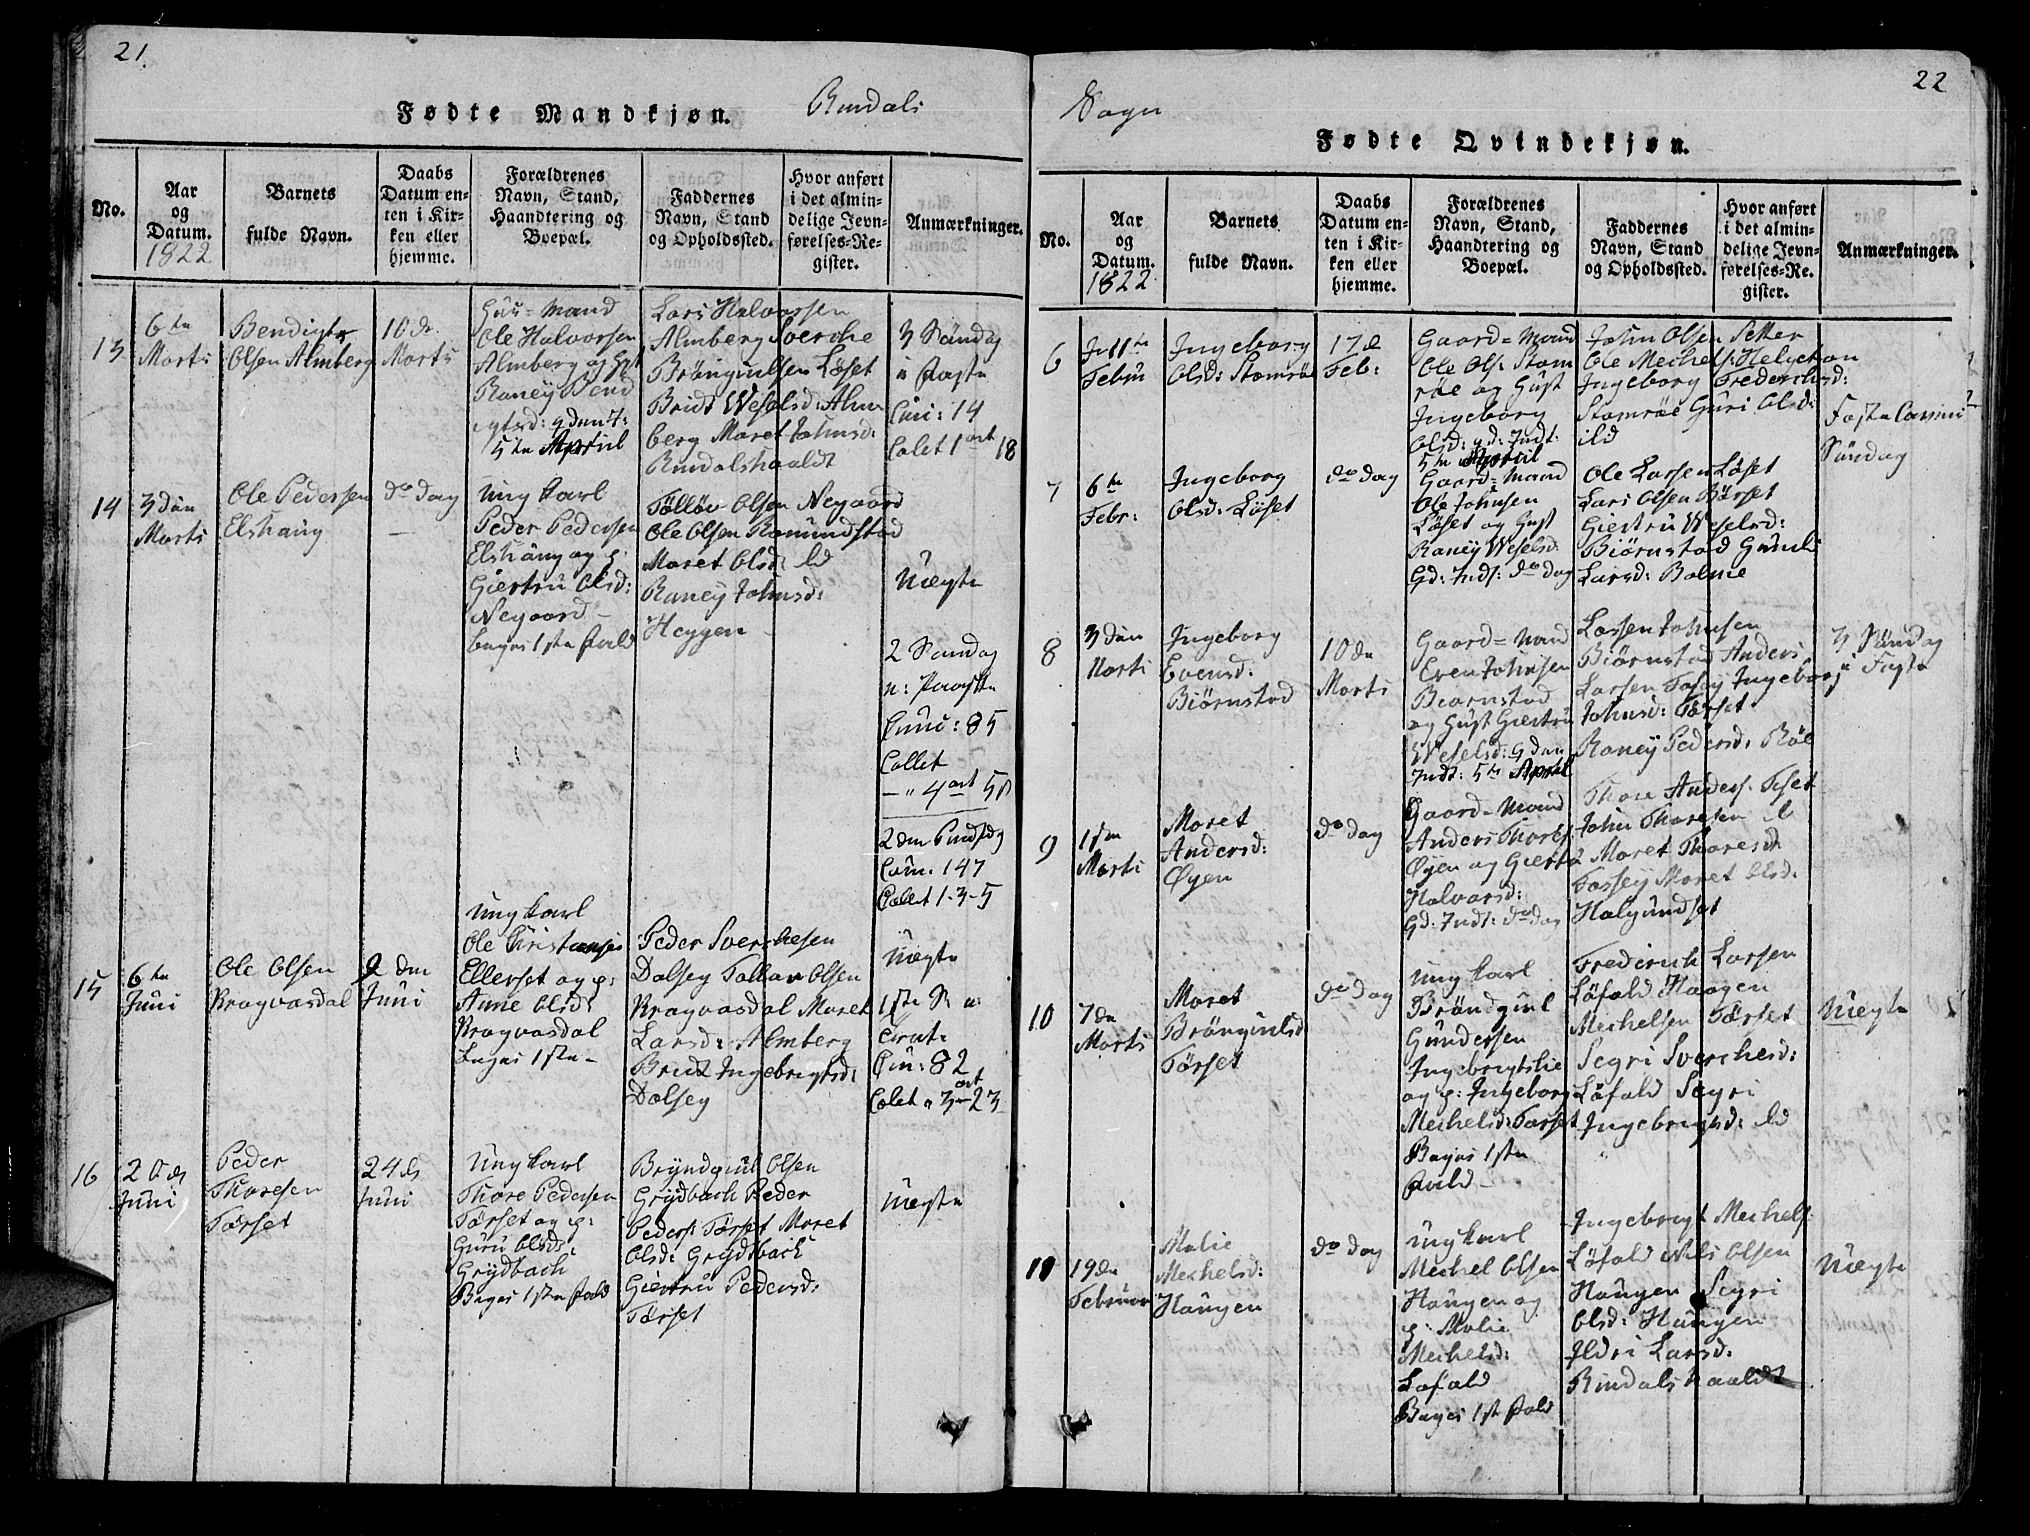 21.
Fødte Mandkjøn.
Rindals
No.
Aar og Datum. 1822
Barnets fulde Navn.
Daabs Datum enten i Kirken eller hjemme.
Forældrenes Navn, Stand, Haandtering og Boepæl.
Faddernes Navn, Stand og Opholdssted.
Hvor anført i det almindelige Jevnførelses-Register.
Anmærkninger.
13
6te
Marti
Bendigt
Olsen Almberg
10de
Marti
Huus=mand
Ole Halvorsen
Almberg og Hust
Raney Bend
igtsd: g den 7:
5te April
Lars Halvorsen
Almberg Sverche
Brøngiulsen Løset
Bridt Weselsd: Alm
berg Maret Johnsd:
Rindalshaaldt
3 Søndag
i Faste
Cuni: 14
Colet 1 ort 18
14
3den
Marti
Ole Pedersen
Elshaug
do dag
Ung karl
Peder Pedersen
Elshaug og p:
Giertru Olsd:
Negaard
begis 1ste Fald
Tølløv Olsen Negaard
Ole Olsen Romundstad
Maret Olsd: ld
Raney Johnsd:
Heggen
Uægte
2 Søndag
n: Paaske
Cuni: 85
Collet
- " 4 ort 5 ß
2den Pindsdg
Com. 147
Collet 1-3-5
15
6te
Juni
Ole Olsen
Kragvasdal
9 den
Juni
Ung karl
Ole Christansen
Ellerset og p:
Anne Olsd:
Kragvasdal
Begis 1ste -
Peder Sverchesen
Dalsey Tollav Olsen
Kragvasdal Maret
Larsd: Almberg
Bridt Ingebrigtsd:
Dalsey
Uægte
1ste S: n:
Trint:
Cuni: 82
Colet " 3 ort 23
16
20de
Juni
Peder
Thoresen
Tørset
24de
Juni
Ung karl
Thore Pedersen
Tørset og p:
Guru Olsd:
Grydbach
Begis 1ste Fald
Bryndgiul Olsen
Grydbach Peder
Peders: Tørset Maret
Olsd: Grydtbach
Giertru Pedersd:
Tørset
Uægte
22
Sogn
Fødte Qvindekjøn.
No.
Aar og Datum. 1822
Barnets fulde Navn.
Daabs Datum enten i Kirken eller hjemme.
Forældrenes Navn, Stand, Haandtering og Boepæl.
Faddernes Navn, Stand og Opholdssted.
Hvor anført i det almindelige Jevnførelses-Register.
Anmærkninger.
6
11te
Febru
Ingeborg
Olsd: Stomrøe
17de
Feb:
Gaard=Mand
Ole Ols: Stom
røe og Hust
Ingeborg
Olsd: gd: Indt:
5te April
John Olsen Setter
Ole Mechels: Helgeton
Ingeborg Frederichsd:
Stomrøe Guri Olsd:
ild
Faste
Søndag
7
6te
Febr:
Ingeborg
Olsd: Løset
do dag
Gaard=Mand
Ole Johnsen
Løset og Hust
Raney Weselsd
Gd: Indt: do dag
Ole Larsen Løset
Lars Olsen Børset
Giertru Weselsd:
Biørnstad Gunil
Larsd: Bolme
8
3den
Marti
Ingeborg
Evensd:
Biørnstad
10de
Marti
Gaard=Mand
Even Johnsen
Beornstad
og Hust Giertru
Weselsd: g den
Indt: 5te April
Larsen Johnsen
Biørnstad Anders
Larsen Fossey Ingeborg
Johnsd: Tørset
Raney Pedersd: Røe
3 Søndag
i Faste
9
1ste
Marti
Maret
Andersd:
Øyen
do dag
Gaard=Mand
Anders Thores:
Øyen og Giertru
Halvorsd:
Gd: Indt: do dag
Thore Anders: Teset
John Thoresen ld
Maret Thoresd
Fossey Maret Olsd:
Halgundset
10
7de
Marti
Maret
Brøngiulsd
Tørset
do dag
Ung karl
Brøndgiul
Gundersen
Ingebrigtslie
og p: Ingeborg
Mechelsd: Tørset
Begis 1ste
Fald
Frederich Larsen
Løfald Haagen
Mechelsen Tørset
Segri Sverchesd:
Løfald Segri
Ingebrigsd: ld
Uægte
11
19de
Februar
Malie
Mechelsd:
Haugen
do dag
Ung karl
Mechel Olsen
Haugen og
p: Malie
Mechelsd:
Løfald
Begis 1ste Fald
Ingebrigt Mechels
Løfald Nils Olsen
Haugen Segri
Olsd: Haugen
Ildri Larsd:
Rindalshaaldt
Uægte